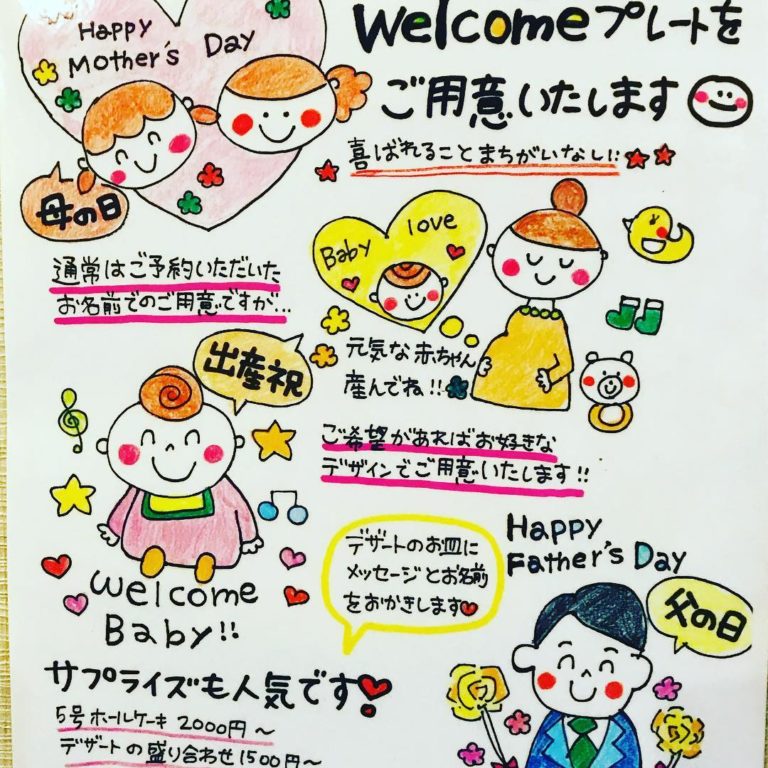 Happy
Mother's Day
Welcomeプレートを
ご用意いたします
喜ばれることまちがいなし!!
母の日
Baby love
通常はご予約いただいた
お名前でのご用意ですが...
出産祝
元気な赤ちゃん
産んでね!!
ご希望があればお好きな
デザインでご用意いたします!!
welcome
Baby!!
デザートのお皿に
メッセージとお名前
をおかきします
Happy
Father's Day
父の日
サプライズも人気です
5号ホールケーキ 2000円〜
デザートの盛り合わせ1500円〜